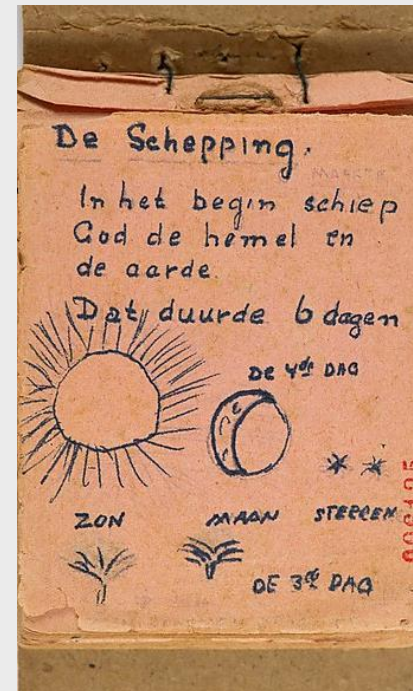 De Schepping.
In het begin schiep
God de hemel en
de aarde.
Dat duurde 6 dagen
DE 4de DAG
ZON MAAN STERREN
DE 3de DAG